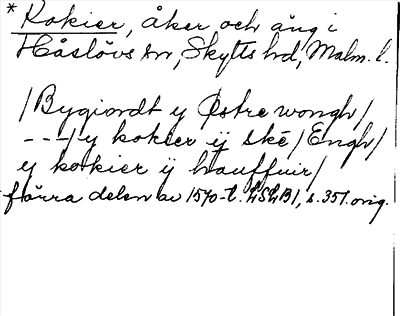 *Kokier, åker och äng i
Håslövs sn, Skytts hd, Malm. l.
/Bygiordt y Østre wongh/
---/y kokier ÿ ske/Engh/
y kokier ÿ hauffuir/
förra delen av 1570-t. LSLB1, s. 351. orig.